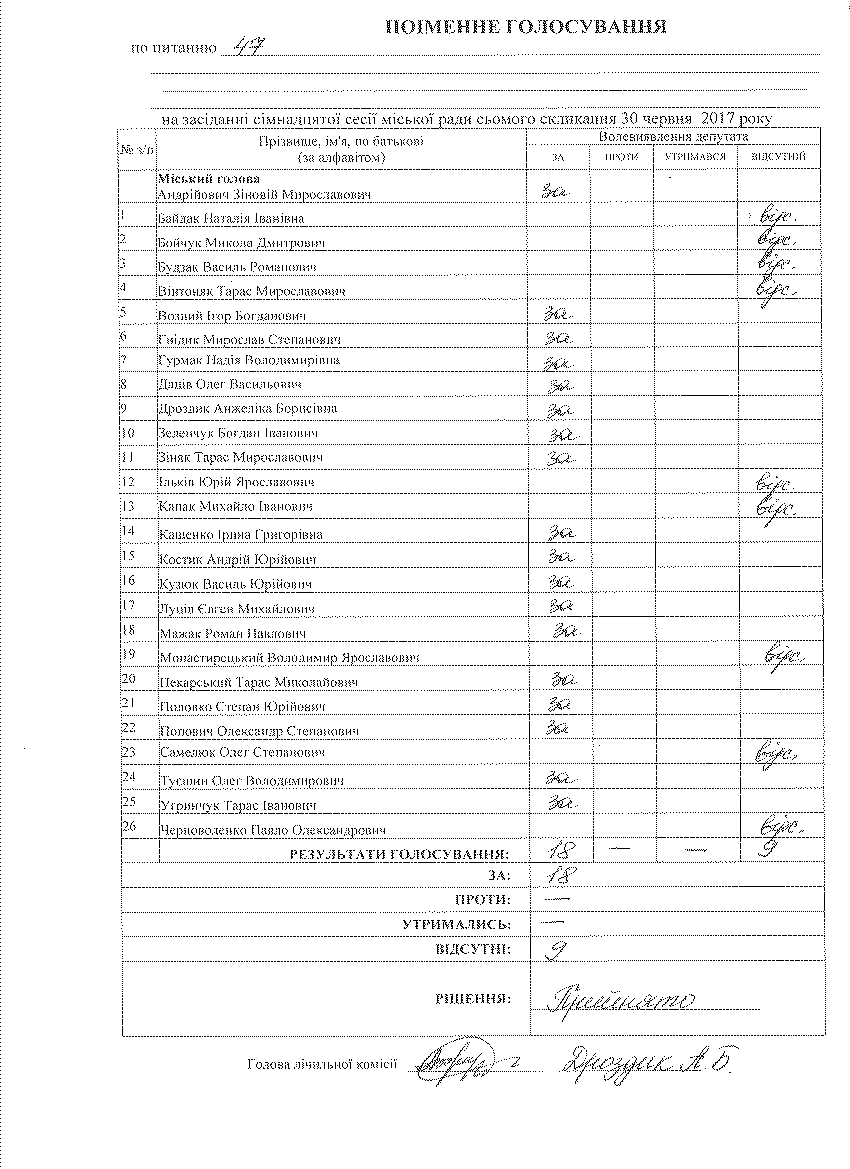 ПОІМЕННЕ ГОЛОСУВАННЯ
по питанню 47
на засіданні сімнадцятої сесії міської ради сьомого скликання 30 червня 2017 року
№ з/п Прізвище, ім'я, по батькові (за алфавітом) Волевиявлення депутата
ЗА ПРОТИ УТРИМАВСЯ ВІДСУТНІЙ
Міський голова
Андрійович Зіновій Мирославович за
1 Байдак Наталія Іванівна відс.
2 Бойчук Микола Дмитрович відс.
3 Будзак Василь Романович відс.
4 Вінтоняк Тарас Мирославович відс.
5 Возний Ігор Богданович за
6 Гнідик Мирослав Степанович за
7 Гурмак Надія Володимирівна за
8 Дяців Олег Васильович за
9 Дроздик Анжеліка Борисівна за
10 Зеленчук Богдан Іванович за
11 Зіняк Тарас Мирославович за
12 Ільків Юрій Ярославович відс.
13 Капак Михайло Іванович відс.
14 Кащенко Ірина Григорівна за
15 Костик Андрій Юрійович за
16 Кузюк Василь Юрійович за
17 Луців Євген Михайлович за
18 Мажак Роман Павлович за
19 Монастирецький Володимир Ярославович відс.
20 Пекарський Тарас Миколайович за
21 Половко Степан Юрійович за
22 Попович Олександр Степанович за
23 Самелюк Олег Степанович відс.
24 Тусшин Олег Володимирович за
25 Угринчук Тарас Іванович за
26 Черноволенко Павло Олександрович відс.
РЕЗУЛЬТАТИ ГОЛОСУВАННЯ: 18 — — 9
ЗА: 18
ПРОТИ: —
УТРИМАЛИСЬ: —
ВІДСУТНІ: 9
РІШЕННЯ: Прийнято
Голова лічильної комісії Дроздик А.Б.